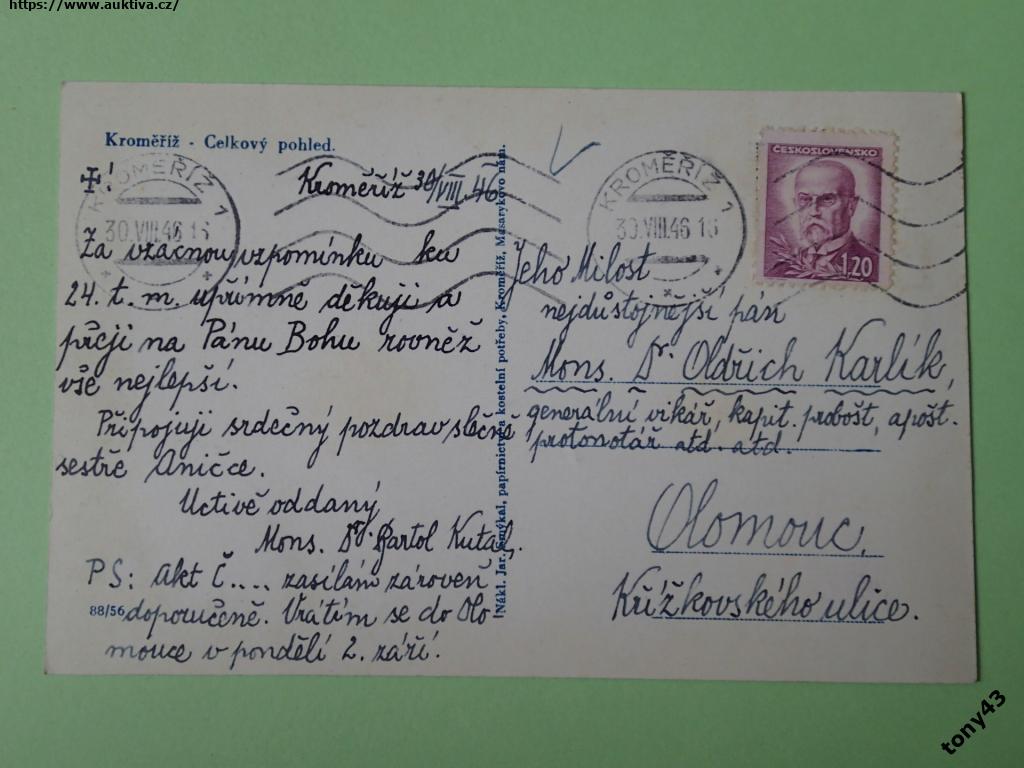 https://www.auktiva.cz/
Kroměříž - Celkový pohled.
KROMĚŘÍŽ 1
30.VIII.46 16
Kroměříž 30/VIII. 46
Za vzácnou vzpomínku ku
24. t. m. upřímně děkuji a
přeji na Pánu Bohu rovněž
vše nejlepší.
Připojuji srdečný pozdrav slečně
sestře Aničce.
Uctivě oddaný
Mons. Dr. Bartol Kutal,
PS: Akt Č.... zasílám zároveň
88/56
doporučeně. Vrátím se do Olo
mouce v pondělí 2. září.
Nákl. Jar. Smýkal, papírnictví a kostelní potřeby, Kroměříž, Masarykovo nám.
KROMĚŘÍŽ 1
30.VIII.46 16
ČESKOSLOVENSKO
1.20
Jeho Milost
nejdůstojnější pán
Mons. Dr. Oldřich Karlík,
generální vikář, kapit. probošt, apošt.
protonotář atd. atd.
Olomouc,
Křížkovského ulice.
tony43